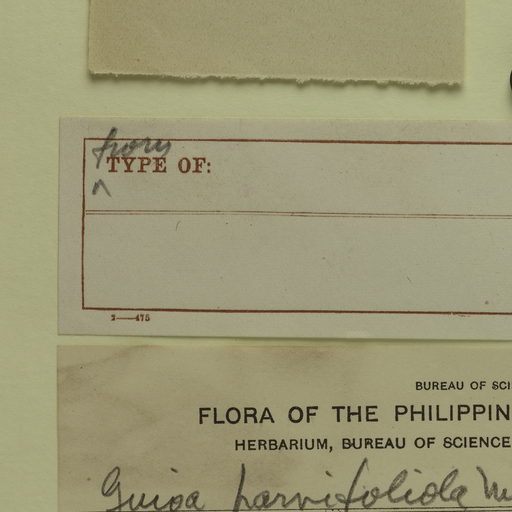 TYPE OF:
2—475
BUREAU OF SCI
FLORA OF THE PHILIPPIN
HERBARIUM, BUREAU OF SCIENCE
Guioa parvifoliola M